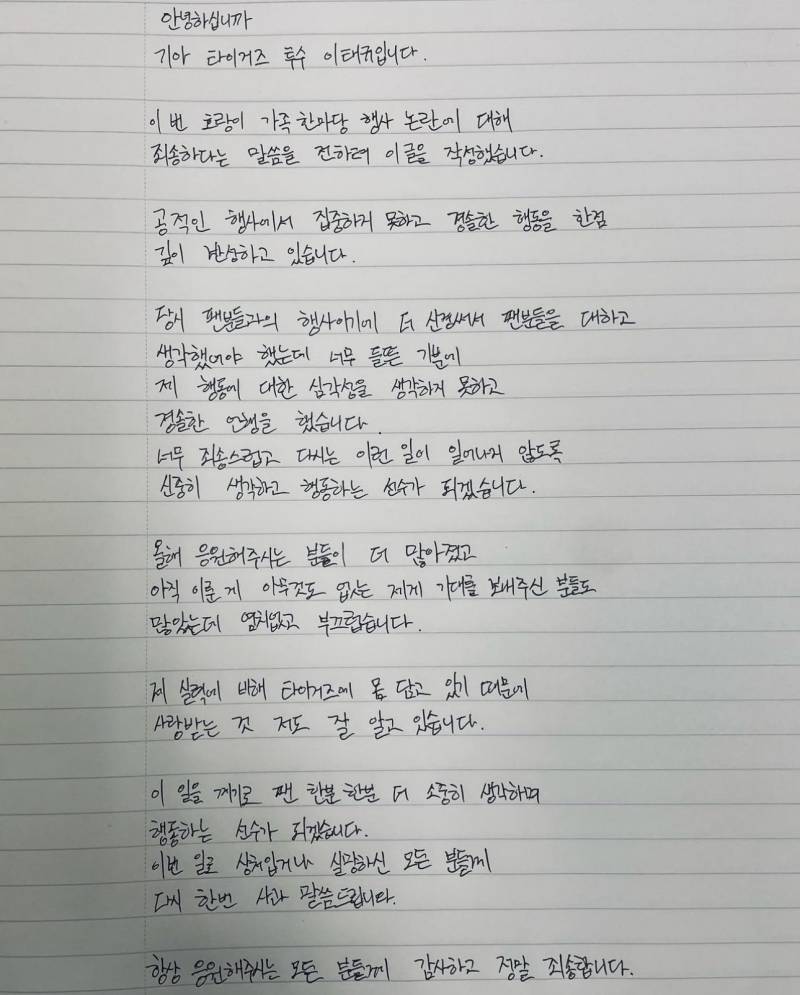 안녕하십니까
기아 타이거즈 투수 이태규입니다.
이번 호랑이 가족 한마당 행사 논란에 대해
죄송하다는 말씀을 전하려 이 글을 작성했습니다.
공적인 행사에서 집중하지 못하고 경솔한 행동을 한점
깊이 반성하고 있습니다.
당시 팬분들과의 행사이기에 더 신경써서 팬분들을 대하고
생각했어야 했는데 너무 들뜬 기분에
제 행동에 대한 심각성을 생각하지 못하고
경솔한 언행을 했습니다.
너무 죄송스럽고 다시는 이런 일이 일어나지 않도록
신중히 생각하고 행동하는 선수가 되겠습니다.
올해 응원해주시는 분들이 더 많아졌고
아직 이룬 게 아무것도 없는 제게 기대를 보내주신 분들도
많았는데 염치없고 부끄럽습니다.
제 실력에 비해 타이거즈에 몸 담고 있기 때문에
사랑받는 것 저도 잘 알고 있습니다.
이 일을 계기로 팬 한분 한분 더 소중히 생각하며
행동하는 선수가 되겠습니다.
이번 일로 상처입거나 실망하신 모든 분들께
다시 한번 사과 말씀드립니다.
항상 응원해주시는 모든 분들께 감사하고 정말 죄송합니다.